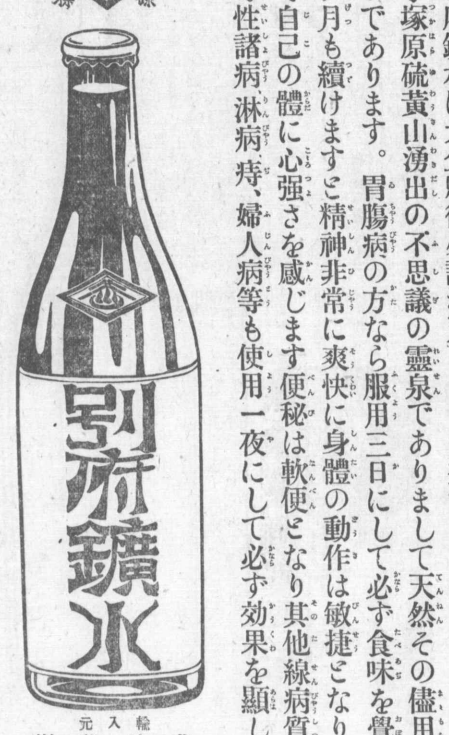 塚原硫黃山湧出の不思議の靈泉でありまして天然その儘用
であります。胃腸病の方なら服用三日にして必ず食味を覺
月も續けますと精神非常に爽快に身體の動作は敏捷となり
自己の體に心强さを感じます便秘は軟便となり其他線病質
性諸病、淋病、痔、婦人病等も使用一夜にして必ず効果を顯し
別府鑛水
輸入元